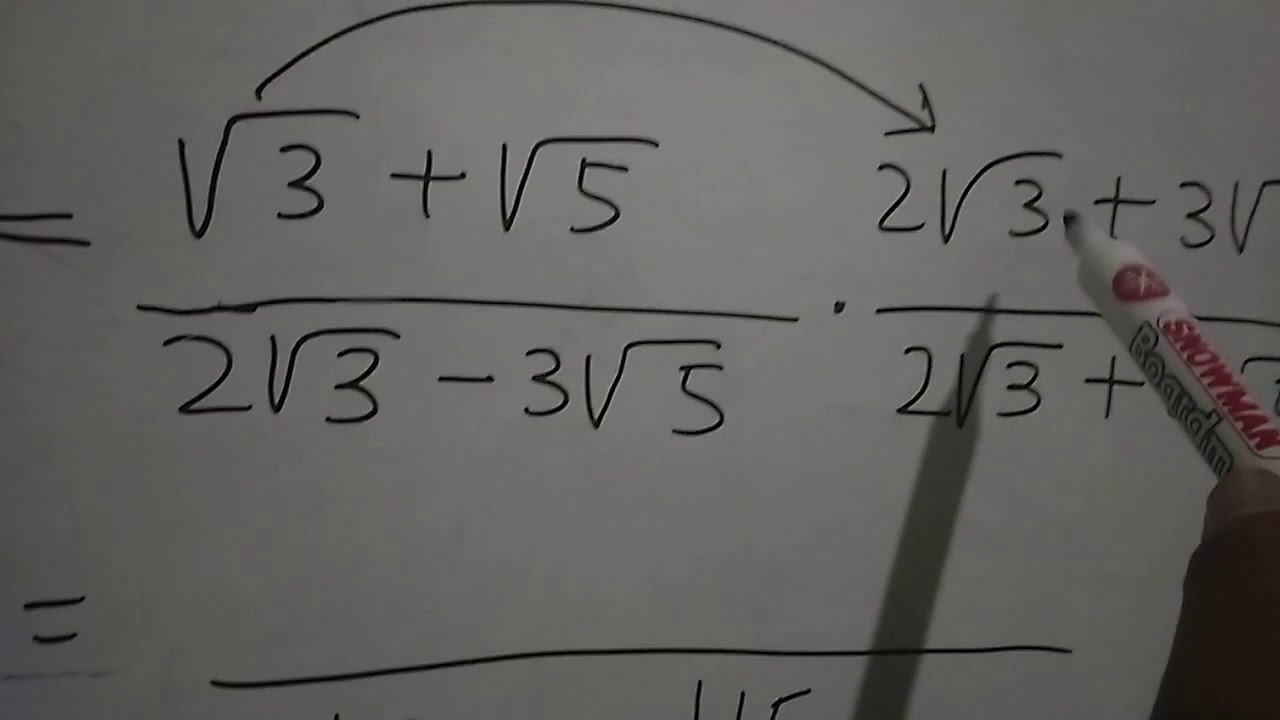 = √3 + √5 2√3 + 3√
2√3 - 3√5 · 2√3 +
SNOWMAN
Boardm
=
45